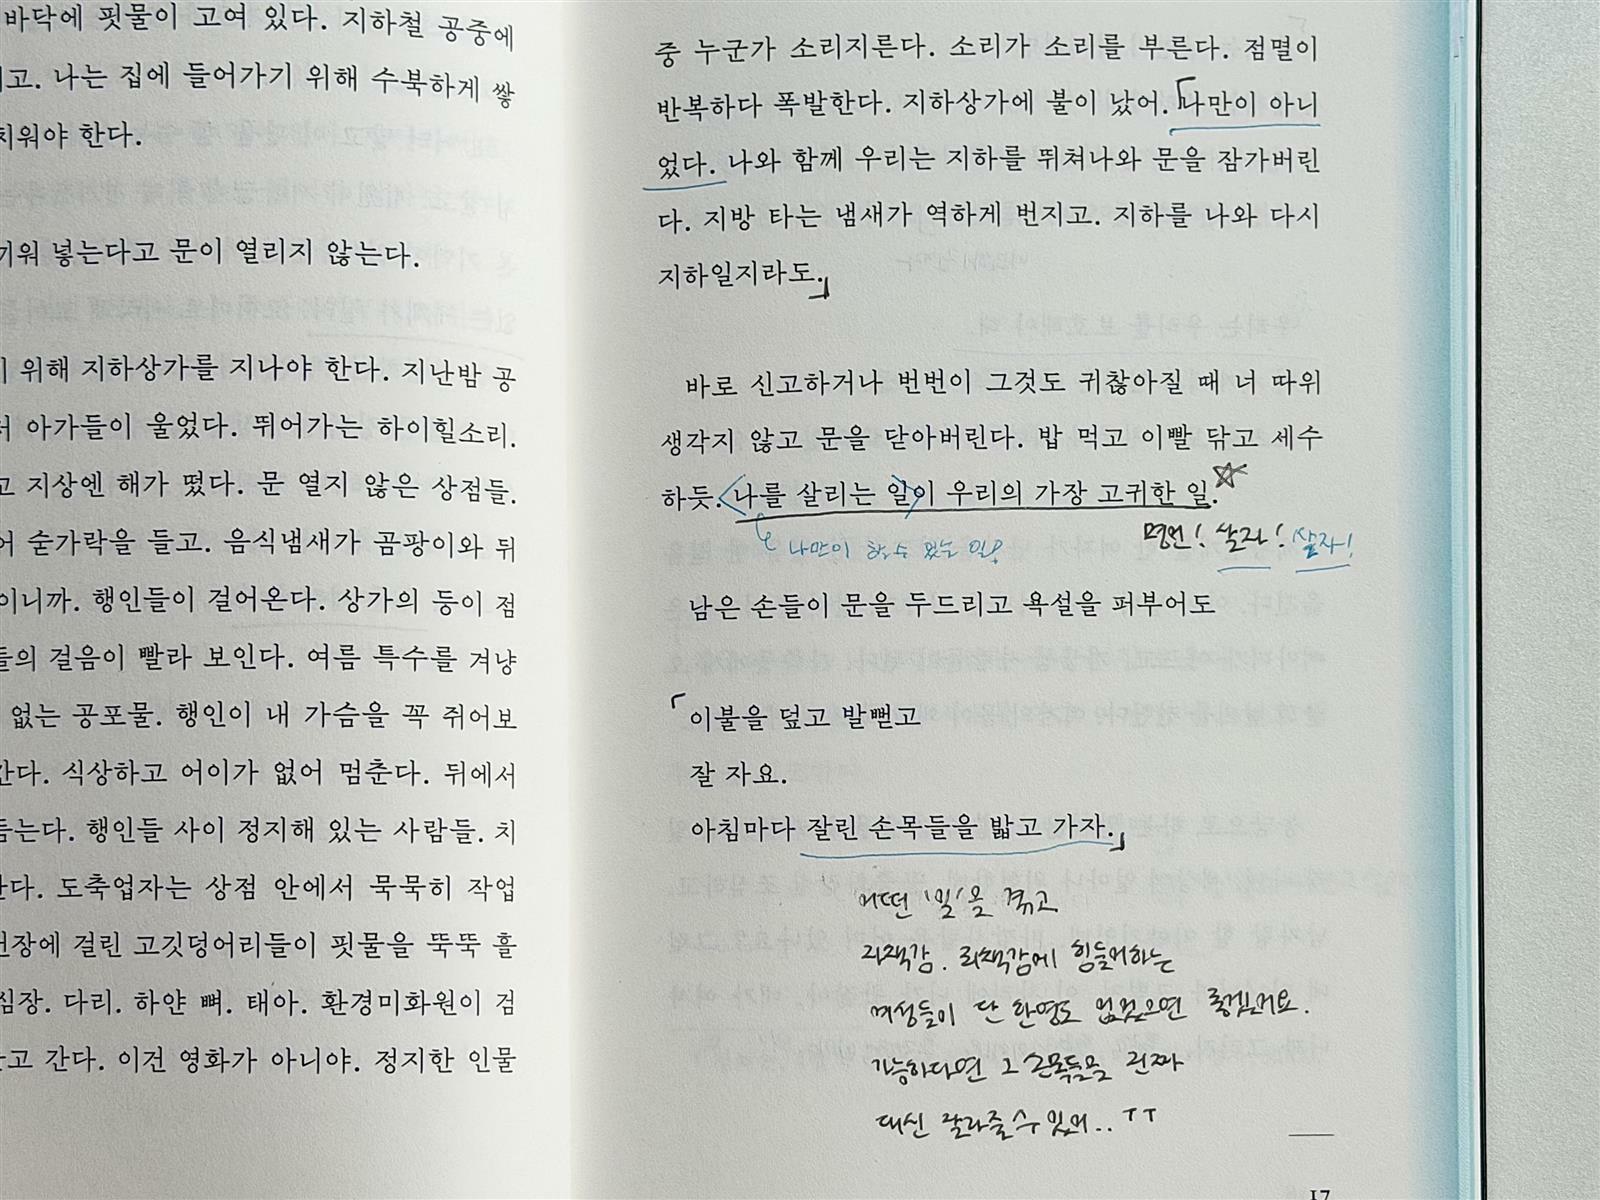 바닥에 핏물이 고여 있다. 지하철 공중에
고. 나는 집에 들어가기 위해 수북하게 쌓
치워야 한다.
끼워 넣는다고 문이 열리지 않는다.
위해 지하상가를 지나야 한다. 지난밤 공
아가들이 울었다. 뛰어가는 하이힐소리.
고 지상엔 해가 떴다. 문 열지 않은 상점들.
어 숟가락을 들고. 음식냄새가 곰팡이와 뒤
이니까. 행인들이 걸어온다. 상가의 등이 점
들의 걸음이 빨라 보인다. 여름 특수를 겨냥
없는 공포물. 행인이 내 가슴을 꼭 쥐어보
간다. 식상하고 어이가 없어 멈춘다. 뒤에서
듬는다. 행인들 사이 정지해 있는 사람들. 치
한다. 도축업자는 상점 안에서 묵묵히 작업
천장에 걸린 고깃덩어리들이 핏물을 뚝뚝 흘
심장. 다리. 하얀 뼈. 태아. 환경미화원이 검
고 간다. 이건 영화가 아니야. 정지한 인물
중 누군가 소리지른다. 소리가 소리를 부른다. 점멸이
반복하다 폭발한다. 지하상가에 불이 났어. 「나만이 아니
었다. 나와 함께 우리는 지하를 뛰쳐나와 문을 잠가버린
다. 지방 타는 냄새가 역하게 번지고. 지하를 나와 다시
지하일지라도.」
바로 신고하거나 번번이 그것도 귀찮아질 때 너 따위
생각지 않고 문을 닫아버린다. 밥 먹고 이빨 닦고 세수
하듯. <나를 살리는 일>이 우리의 가장 고귀한 일. ☆
명언! 살자! 살자!
나만이 할 수 있는 일?
남은 손들이 문을 두드리고 욕설을 퍼부어도
「이불을 덮고 발뻗고
잘 자요.
아침마다 잘린 손목들을 밟고 가자.」
어떤 '일'을 겪고
자책감. 죄책감에 힘들어하는
여성들이 단 한명도 없었으면 좋겠어요.
가능하다면 그 손목들을 진짜
대신 잘라줄 수 있어.. ㅜㅜ
17